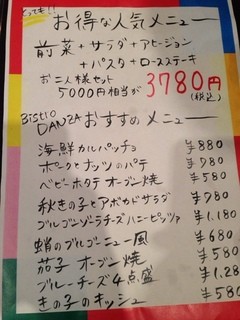 とってモ!!
お得な人気メニュー
前菜+サラダ+アヒージョン
+パスタ+ローステーキ
お二人様セット
5000円相当が 3780円
(税込)
BISTRO
DANZA おすすめメニュー
海鮮カルパッチョ ¥880
ポークとナッツのパテ ¥780
ベビーホタテ オーブン焼 ¥580
秋きの子とアボカドサラダ ¥780
ゴルゴンゾーラチーズハニーピッツァ ¥1,180
蛸のブルゴーニュー風 ¥680
茄子 オーブン焼 ¥580
ブルーチーズ4点盛 ¥1,28
きの子のホッシュ ¥580